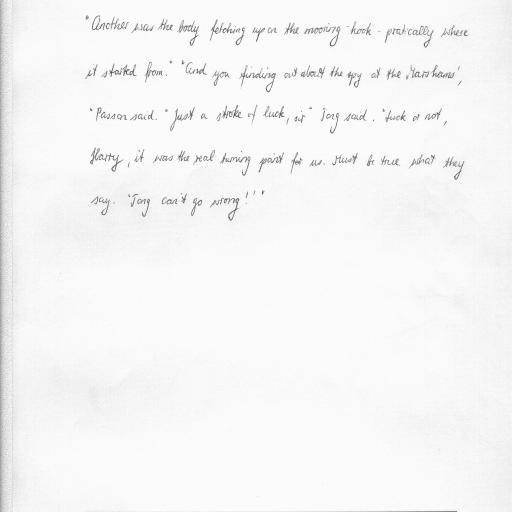 "Another was the body fetching up on the mooring-hook - pratically where
it started from." "And you finding out about the spy at the Marshams',
"Passon said. "Just a stroke of luck, sir" Jorg said. "Luck or not,
Harry, it was the real turning point for us. Must be true what they
say. 'Jorg can't go wrong!'"